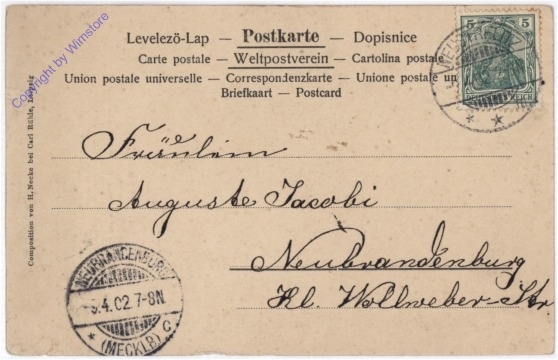 Levelezö-Lap — Postkarte — Dopisnice
Carte postale — Weltpostverein — Cartolina postale
Union postale universelle — Correspondenzkarte — Unione postale un
Briefkaart — Postcard
5 5
REICH
Fräulein
Auguste Jacobi
Neubrandenburg
Kl. Wollweber-Str.
NEUBRANDENBURG
5.4.02 7-8N.
* (MECKLB) C
Composition von H. Necke bei Carl Rühle, Leipzig
Copyright by Wimstore